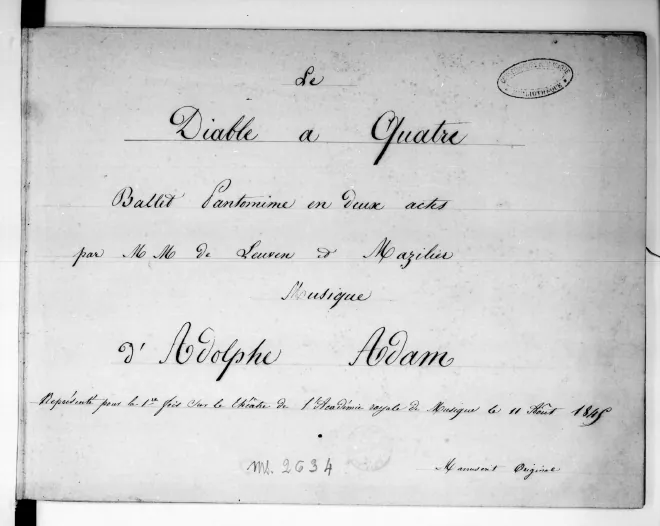 Le
Diable a Quatre
Ballet Pantomime en deux actes
par MM de Leuven et Mazilier
Musique
d'Adolphe Adam
Représenté pour la 1re fois sur le théâtre de l'Académie royale de Musique le 11 Août 1845
Ms. 2634
Manuscrit Original
BIBLIOTHÈQUE